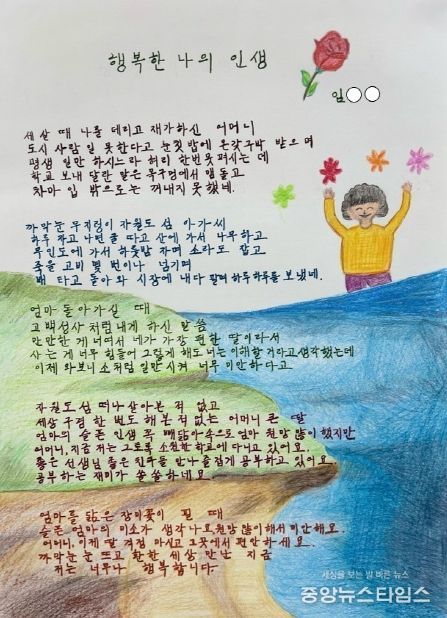 행복한 나의 인생
임○○
세살 때 나를 데리고 재가하신 어머니
도시 사람 일 못한다고 눈칫밥에 온갖구박 받으며
평생 일만 하시느라 허리 한번 못 펴시는 데
학교 보내 달란 말은 목구멍에서 맴돌고
차마 입 밖으로는 꺼내지 못했네.
까막눈 무지렁이 자월도 섬 아가씨
하루 자고 나면 굴 따고 산에 가서 나무하고
무인도에 가서 하룻밤 자며 소라도 잡고
죽을 고비 몇 번이나 넘기며
배 타고 돌아와 시장에 내다 팔며 하루하루를 보냈네.
엄마 돌아가실 때
고백성사처럼 내게 하신 말씀
만만한 게 너여서 네가 가장 편한 딸이라서
사는 게 너무 힘들어 그렇게 해도 너는 이해할거라고 생각했는데
이제 와보니 소처럼 일만 시켜 너무 미안하다고
자월도 섬 떠나 살아본 적 없고
세상 구경 한 번도 해본 적 없는 어머니 큰 딸
엄마의 슬픈 인생 꼭 빼닮아 속으로 엄마 원망 많이 했지만
어머니, 지금 저는 그토록 소원한 학교에 다니고 있어요.
좋은 선생님 좋은 친구들 만나 즐겁게 공부하고 있어요.
공부하는 재미가 쏠쏠하네요.
엄마를 닮은 장미꽃이 필 때
슬픈 엄마의 미소가 생각나요 원망 많이해서 미안해요.
어머니, 이제 딸 걱정 마시고 그곳에서 편안하세요.
까막눈 뜨고 환한 세상 만난 지금
저는 너무나 행복합니다.
세상을 보는 발 빠른 뉴스
중앙뉴스타임스